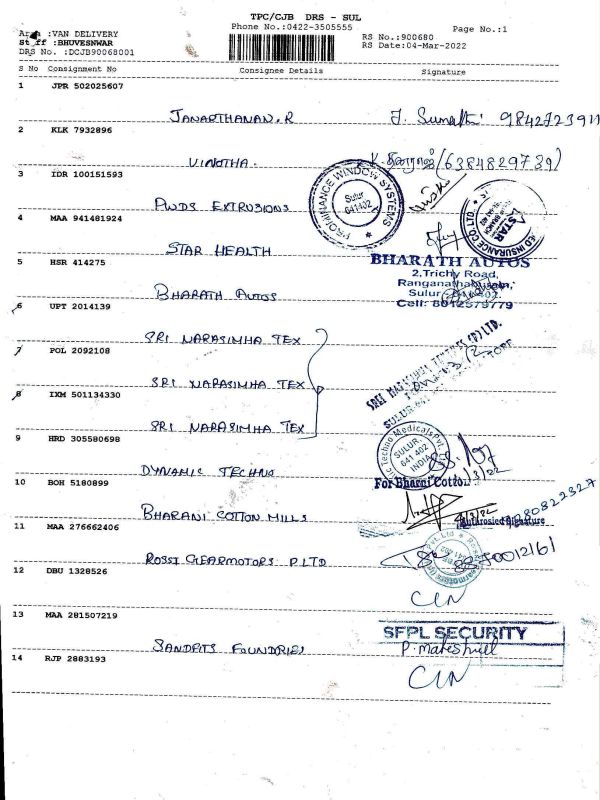 TPC/CJB DRS - SUL
Phone No.:0422-3505555
Page No.:1
Area :VAN DELIVERY
Staff :BHUVESNWAR
DRS No. :DCJB90068001
RS No.:900680
RS Date:04-Mar-2022
S No Consignment No Consignee Details Signature
1 JPR 502025607
JANARTHANAN.R J. Sumathi 9842723911
2 KLK 7932896
VINOTHA. (6384829739)
3 IDR 100151593
PWDS EXTRUSIONS
PROMINANCE WINDOW SYSTEMS
Sulur
641402
4 MAA 941481924
STAR HEALTH
STAR
D INSURANCE CO.LTD.
5 HSR 414275
BHARATH AUTOS
2,Trichy Road,
Sulur
BHARATH AUTOS
6 UPT 2014139
SRI NARASIMHA TEX
7 POL 2092108
SRI NARASIMHA TEX
8 IXM 501134330
SRI NARASIMHA TEX
9 HRD 305580698
DYNAMIC TECHNO
Techno Medicals Pvt.
SULUR
641 402
INDIA
1/3/22
10 BOH 5180899
For Bharni Cotton
BHARANI COTTON MILLS
4/3/22
Autarosied Signature
11 MAA 276662406
ROSSI GEARMOTORS P.LTD
12 DBU 1328526
13 MAA 281507219
SFPL SECURITY
SANDFITS FOUNDRIES
14 RJP 2883193